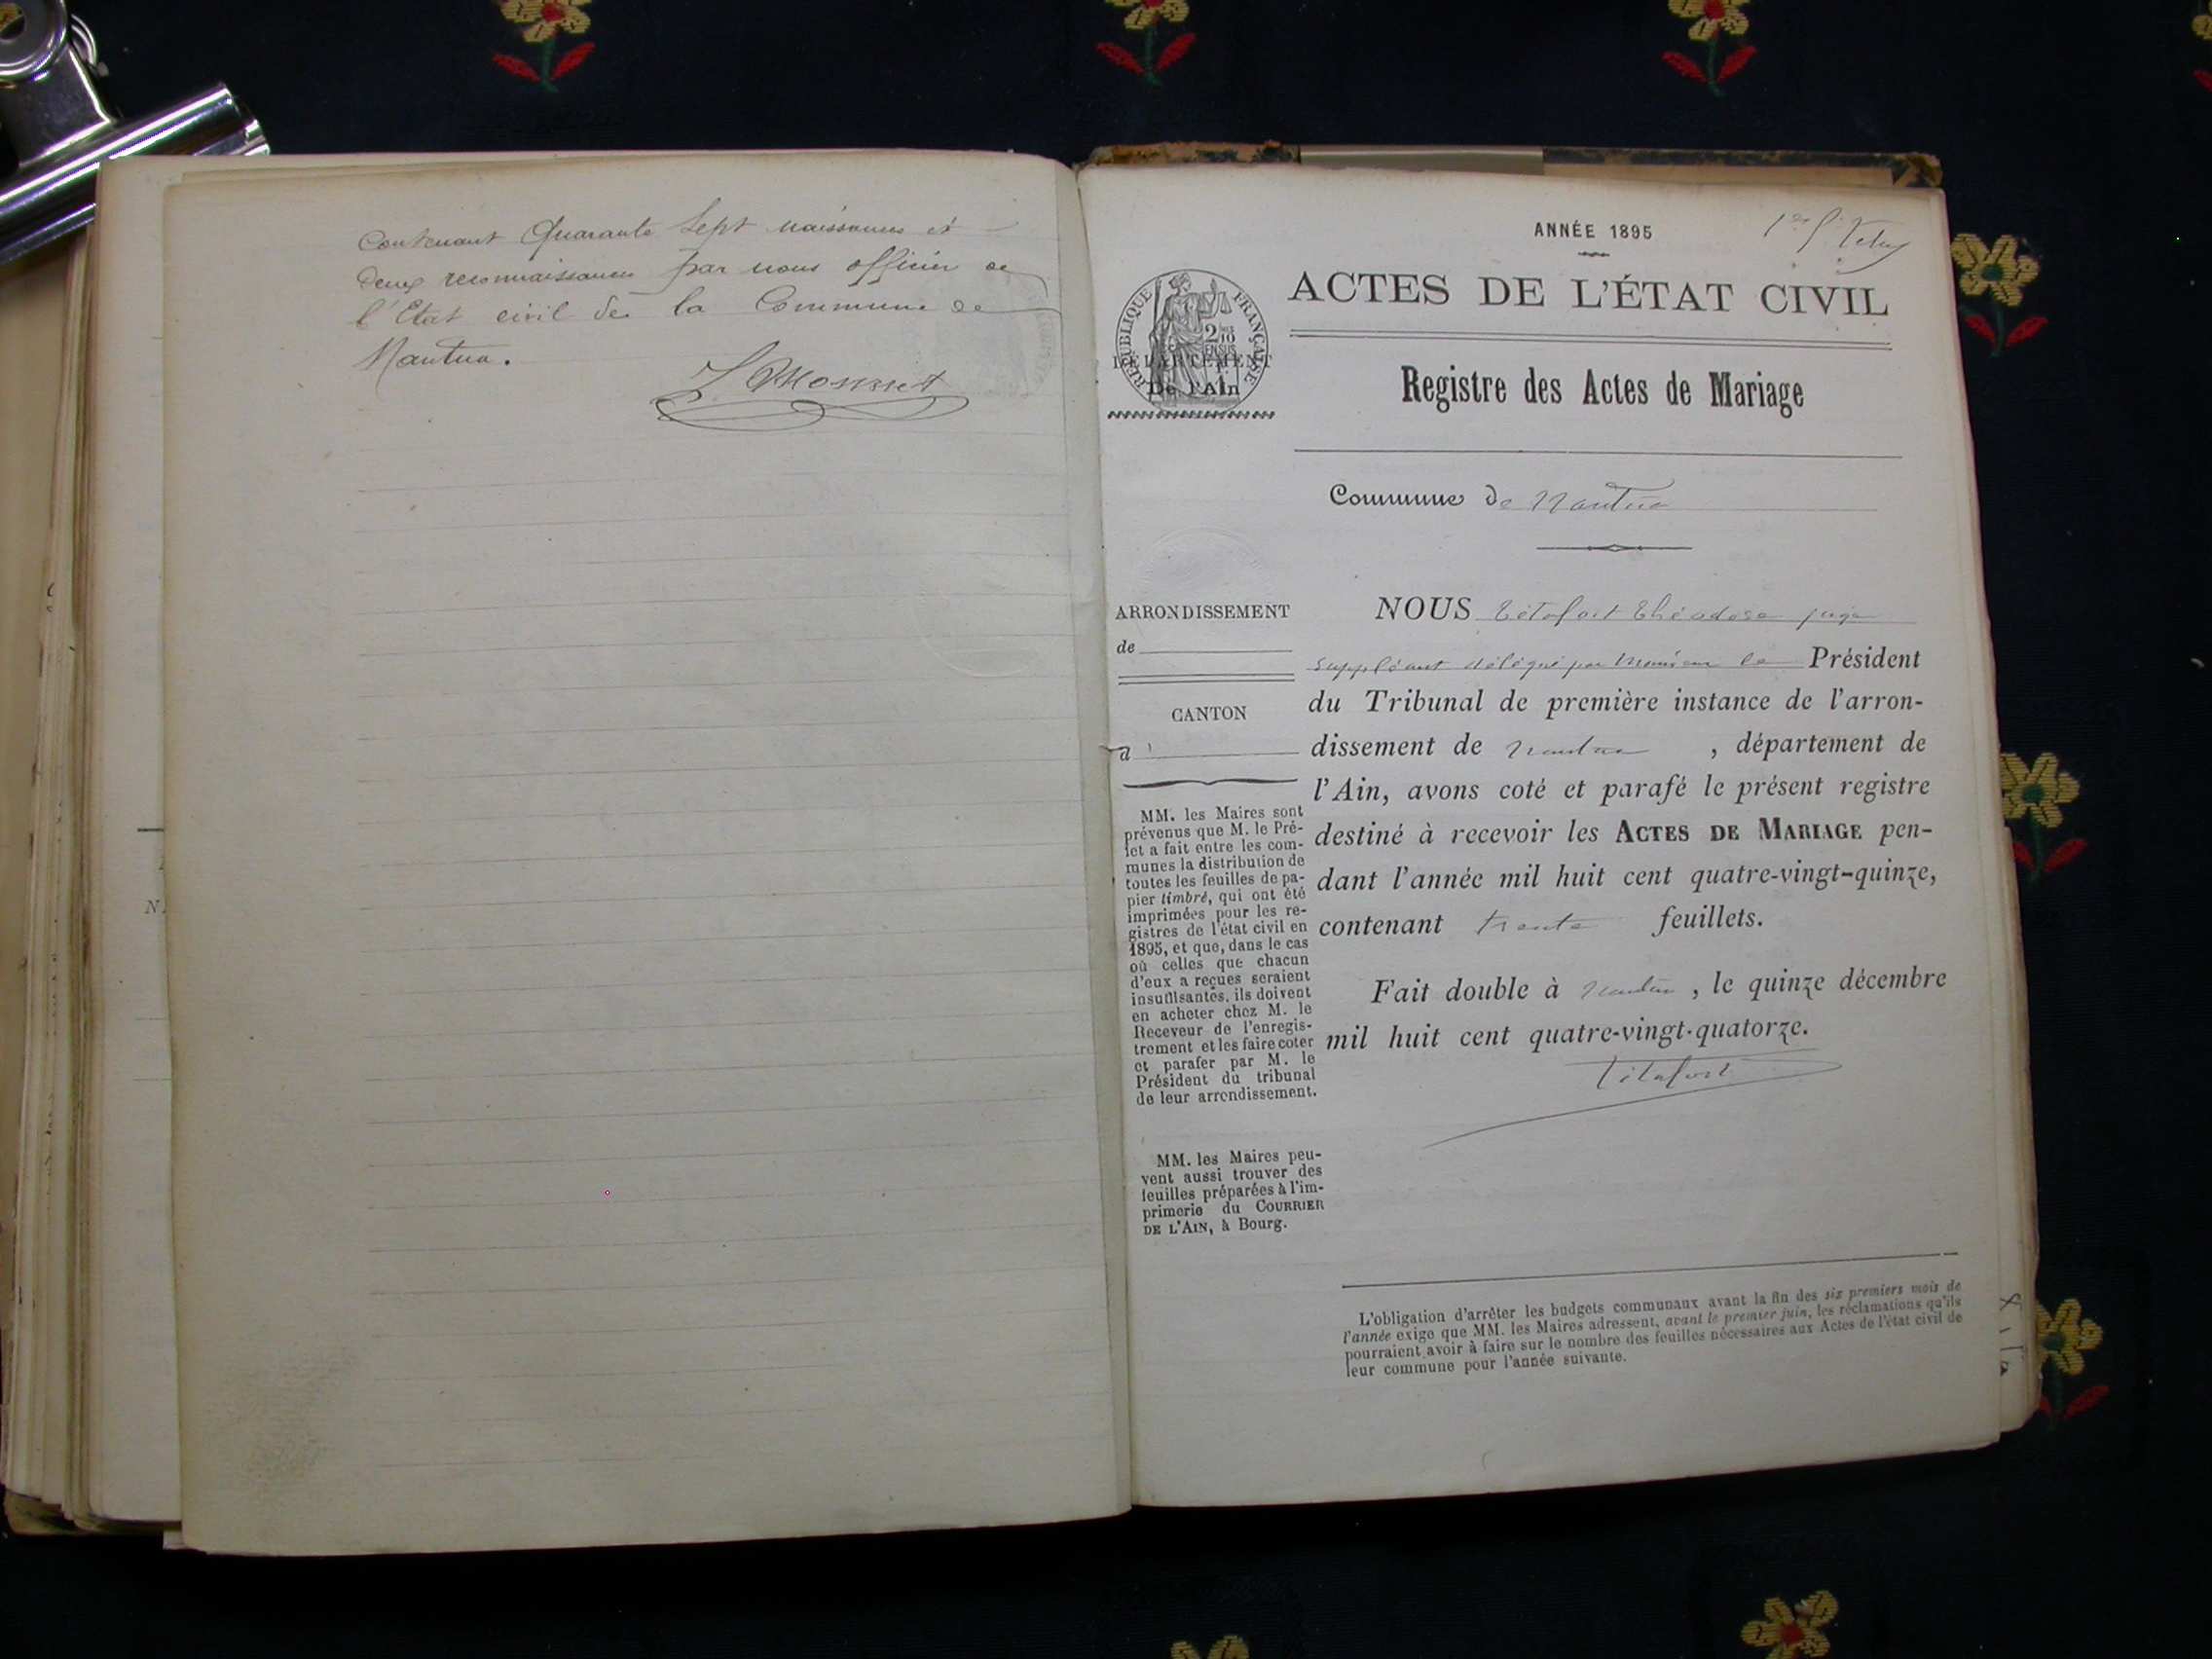 Contenant Quarante Sept naissances et
deux reconnaissances par nous officier de
l'Etat civil de la Commune de
Nantua.
ANNÉE 1895
ACTES DE L'ÉTAT CIVIL
RÉPUBLIQUE FRANÇAISE
DÉPARTEMENT
De l'Ain
Registre des Actes de Mariage
Commune de Nantua
ARRONDISSEMENT
de
CANTON
d
MM. les Maires sont
prévenus que M. le Pré-
fet a fait entre les com-
munes la distribution de
toutes les feuilles de pa-
pier timbré, qui ont été
imprimées pour les re-
gistres de l'état civil en
1895, et que, dans le cas
où celles que chacun
d'eux a reçues seraient
insuffisantes, ils doivent
en acheter chez M. le
Receveur de l'enregis-
trement et les faire coter
et parafer par M. le
Président du tribunal
de leur arrondissement.
MM. les Maires peu-
vent aussi trouver des
feuilles préparées à l'im-
primerie du COURRIER
DE L'AIN, à Bourg.
NOUS Tétafort Théodose juge
suppléant délégué par Monsieur le Président
du Tribunal de première instance de l'arron-
dissement de Nantua , département de
l'Ain, avons coté et parafé le présent registre
destiné à recevoir les ACTES DE MARIAGE pen-
dant l'année mil huit cent quatre-vingt-quinze,
contenant trente feuillets.
Fait double à Nantua , le quinze décembre
mil huit cent quatre-vingt-quatorze.
Tétafort
L'obligation d'arrêter les budgets communaux avant la fin des six premiers mois de
l'année exige que MM. les Maires adressent, avant le premier juin, les réclamations qu'ils
pourraient avoir à faire sur le nombre des feuilles nécessaires aux Actes de l'état civil de
leur commune pour l'année suivante.